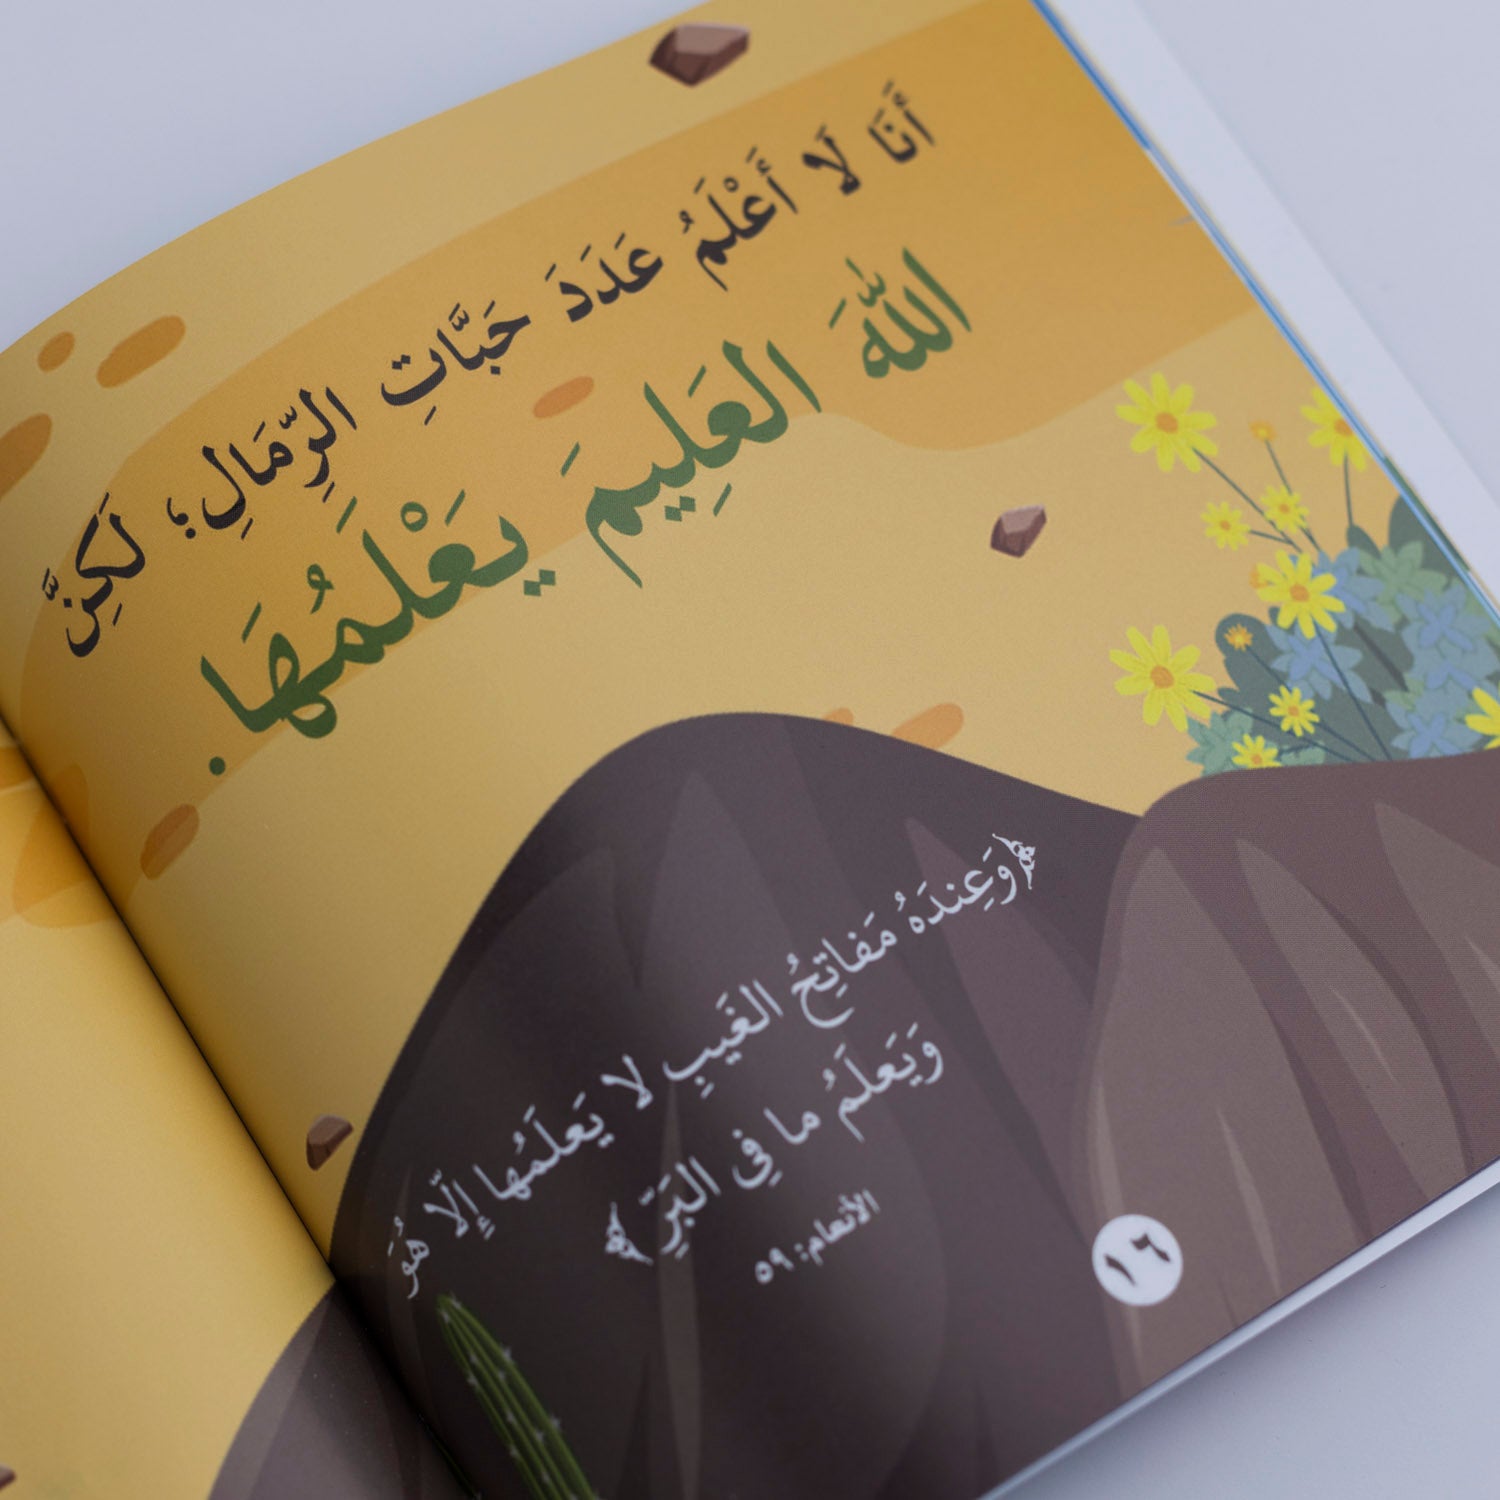 أَنَا لَا أَعْلَمُ عَدَدَ حَبَّاتِ الرِّمَالِ؛ لَكِنَّ
اللَّهَ العَلِيمَ يَعْلَمُهَا.
﴿وَعِندَهُ مَفاتِحُ الغَيبِ لا يَعلَمُها إِلّا هُوَ
وَيَعلَمُ ما فِي البَرِّ﴾
الأنعام: ٥٩
١٦